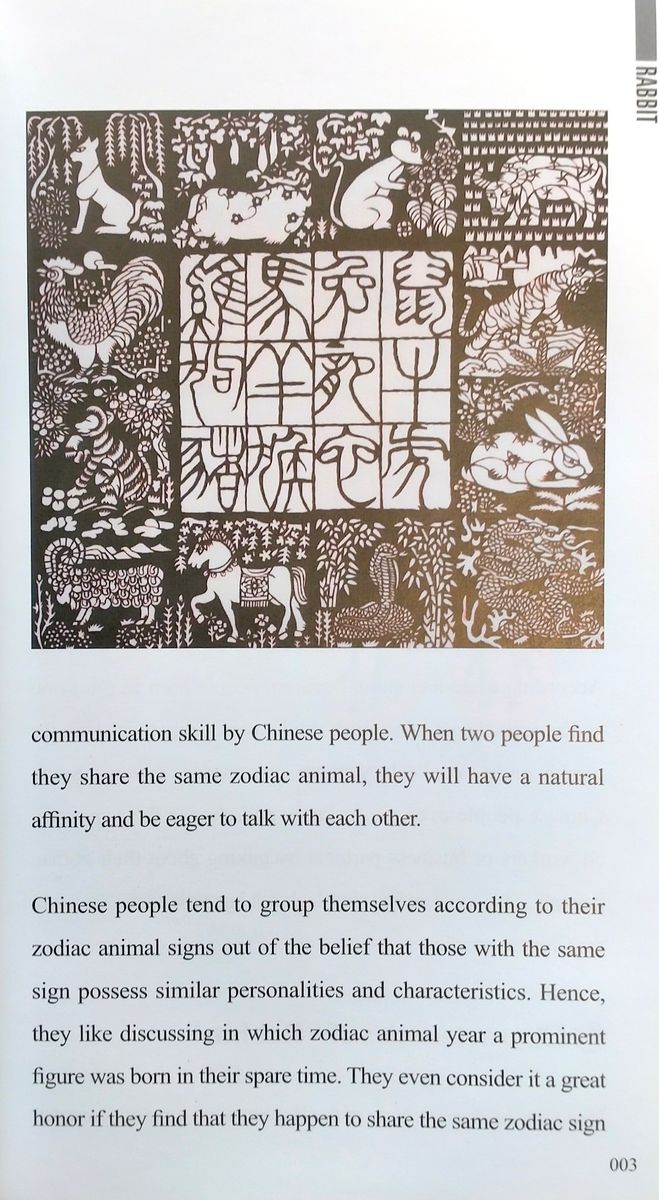 RABBIT
鼠牛虎
兔
馬羊猴
狗
communication skill by Chinese people. When two people find
they share the same zodiac animal, they will have a natural
affinity and be eager to talk with each other.
Chinese people tend to group themselves according to their
zodiac animal signs out of the belief that those with the same
sign possess similar personalities and characteristics. Hence,
they like discussing in which zodiac animal year a prominent
figure was born in their spare time. They even consider it a great
honor if they find that they happen to share the same zodiac sign
003